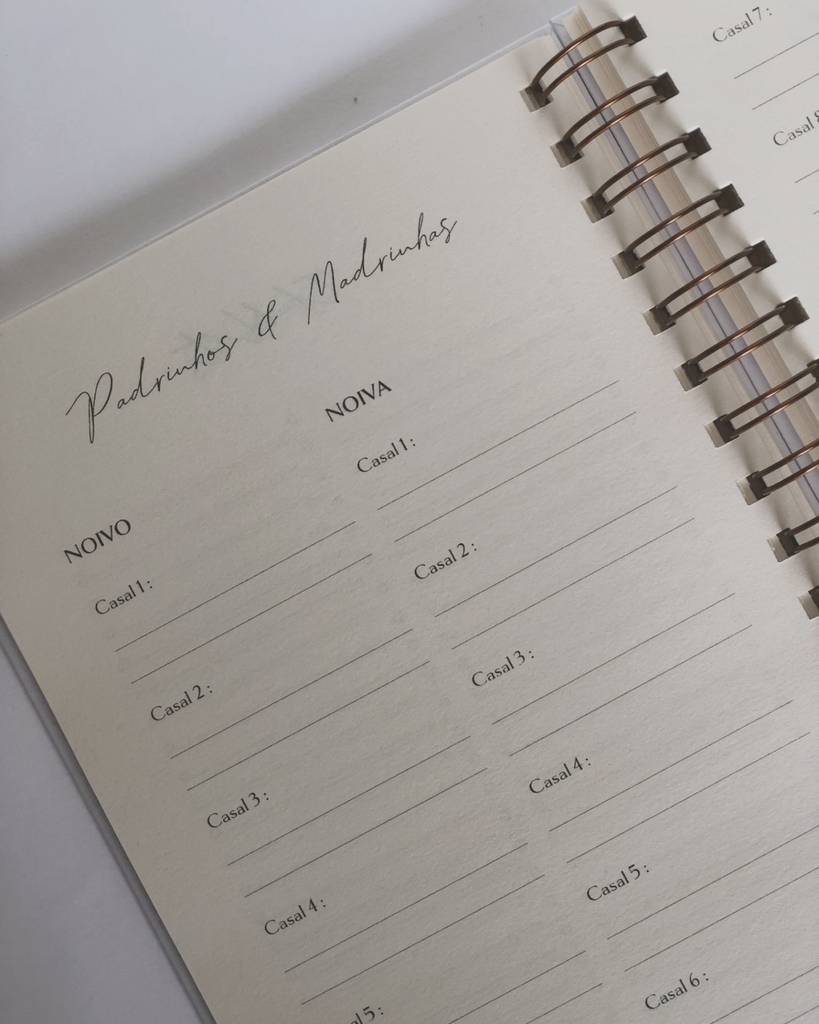 Padrinhos & Madrinhas
NOIVO
Casal 1:
Casal 2:
Casal 3:
Casal 4:
Casal 5:
NOIVA
Casal 1:
Casal 2:
Casal 3:
Casal 4:
Casal 5:
Casal 6:
Casal 7:
Casal